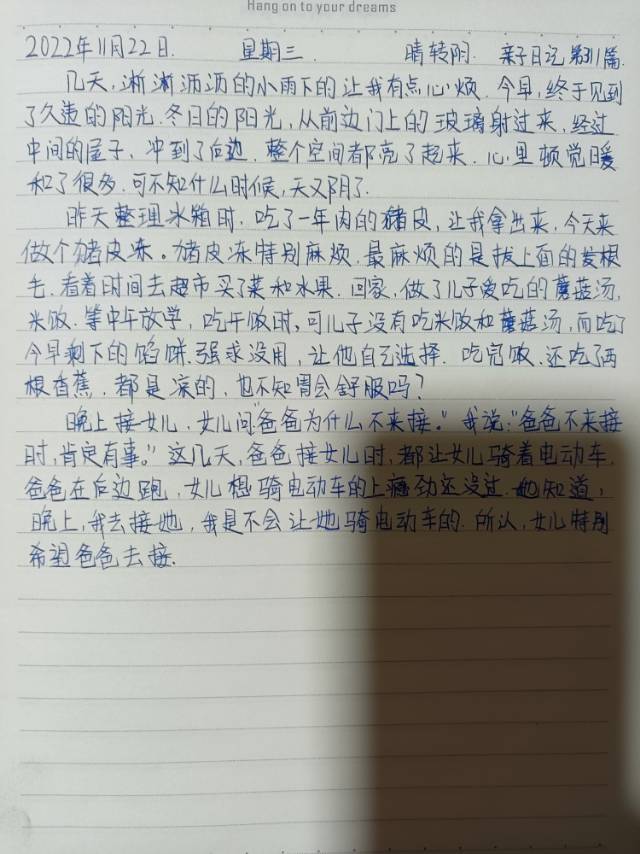 Hang on to your dreams
2022年11月22日. 星期三. 晴转阴. 亲子日记第311篇.
几天,淅淅沥沥的小雨下的让我有点心烦.今早,终于见到
了久违的阳光.冬日的阳光,从前边门上的玻璃射过来,经过
中间的屋子,冲到了后边.整个空间都亮了起来.心里顿觉暖
和了很多.可不知什么时候,天又阴了.
昨天整理冰箱时.吃了一年肉的猪皮,让我拿出来,今天来
做个猪皮冻。猪皮冻特别麻烦.最麻烦的是拔上面的发根
毛.看着时间去超市买了菜和水果.回家,做了儿子爱吃的蘑菇汤,
米饭.等中午放学,吃午饭时,可儿子没有吃米饭和蘑菇汤,而吃了
今早剩下的馅饼.强求没用,让他自己选择.吃完饭.还吃了两
根香蕉.都是凉的,也不知胃会舒服吗?
晚上接女儿.女儿问"爸爸为什么不来接。"我说:"爸爸不来接
时,肯定有事。"这几天,爸爸接女儿时,都让女儿骑着电动车,
爸爸在后边跑,女儿想骑电动车的上瘾劲还没过.她知道,
晚上,我去接她,我是不会让她骑电动车的.所认,女儿特别
希望爸爸去接.